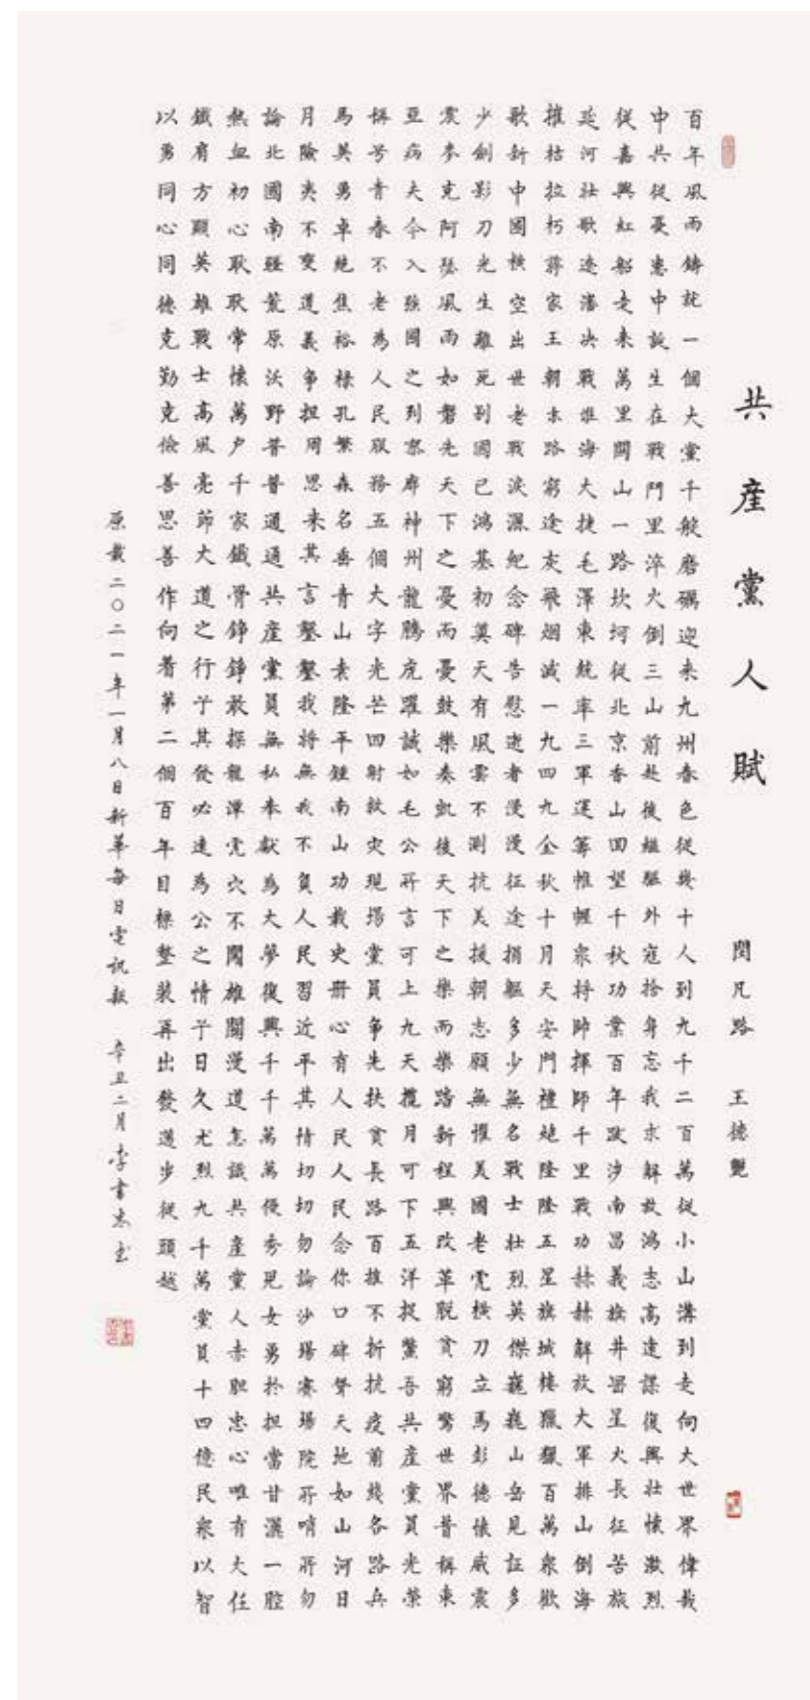 共産黨人賦
閆凡路 王德艷
百年風雨鑄就一個大黨千般磨礪迎来九州春色従幾十人到九千二百萬従小山溝到走向大世界偉哉
中共従憂患中誕生在戰鬥里淬火倒三山前赴後繼驅外寇捨身忘我求解放鴻志高遠謀復興壯懷激烈
従嘉興紅船走来萬里關山一路坎坷従北京香山回望千秋功業百年跋涉南昌義旗井岡星火長征苦旅
延河壯歌遼瀋决戰淮海大捷毛澤東統率三軍運籌帷幄衆将帥揮師千里戰功赫赫解放大軍排山倒海
摧枯拉朽蒋家王朝末路窮途灰飛烟滅一九四九金秋十月天安門禮炮隆隆五星旗城樓獵獵百萬衆歡
歌新中國橫空出世老戰淚灑紀念碑告慰逝者漫漫征途捐軀多少無名戰士壯烈英傑巍巍山岳見証多
少劍影刀光生離死別國已鴻基初奠天有風雲不測抗美援朝志願無懼美國老虎橫刀立馬彭德懷威震
震麥克阿瑟風雨如磐先天下之憂而憂鼓樂奏凱後天下之樂而樂踏新程興改革脫貧窮驚世界昔稱東
亞病夫今入強國之列察神州龍騰虎躍誠如毛公所言可上九天攬月可下五洋捉鱉吾共産黨員光榮
稱号青春不老為人民服務五個大字光芒四射救災現場黨員争先扶貧長路百摧不折抗疫前綫各路兵
馬英勇卓絶焦裕禄孔繁森名垂青山袁隆平鍾南山功載史册心有人民人民念你口碑聲天地如山河日
月險夷不變道義争担周恩来其言鑿鑿我将無我不負人民習近平其情切切勿論沙場賽場院所哨所勿
論北國南疆荒原沃野普普通通共産黨員無私奉獻為大夢復興千千萬萬優秀兒女勇於担當甘灑一腔
熱血初心耿耿常懷萬户千家鐵骨錚錚敢探龍潭虎穴不聞雄關漫道怎識共産黨人赤胆忠心唯有大任
鐵肩方顯英雄戰士高風亮節大道之行于其發必遠為公之情于日久尤烈九千萬黨員十四億民衆以智
以勇同心同德克勤克儉善思善作向着第二個百年目標整装再出發邁步従頭越
原載二〇二一年一月八日新華每日電訊報 辛丑二月李書杰書